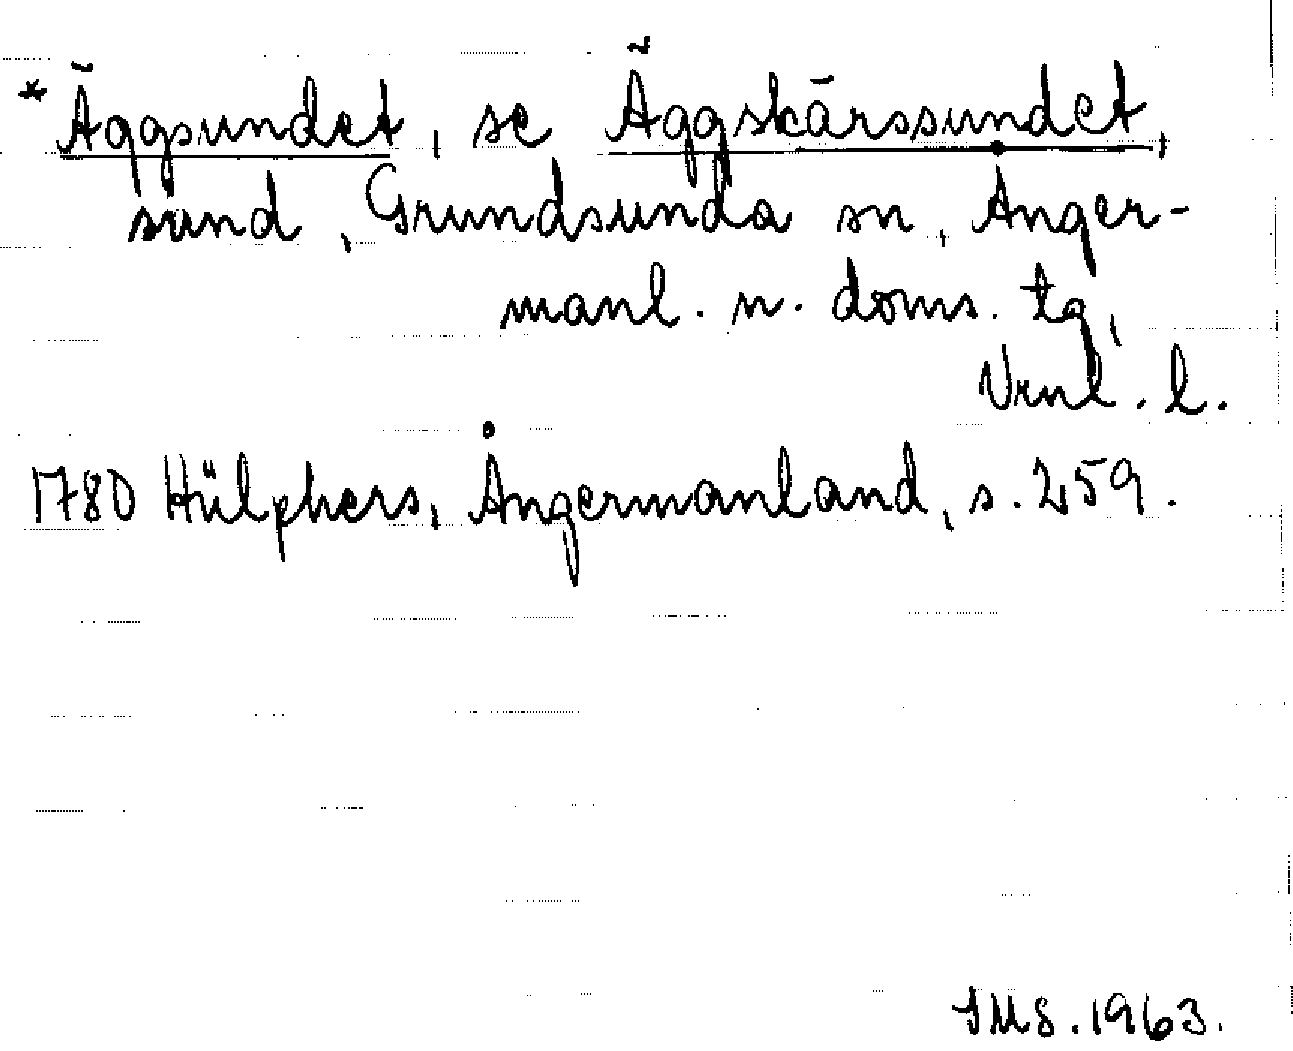 * Äggsundet, se Äggskärssundet,
sund, Grundsunda sn, Ånger-
manl. n. doms. tg,
Vrnl. l.
1780 Hülphers, Ångermanland, s. 259.
SMS. 1963.